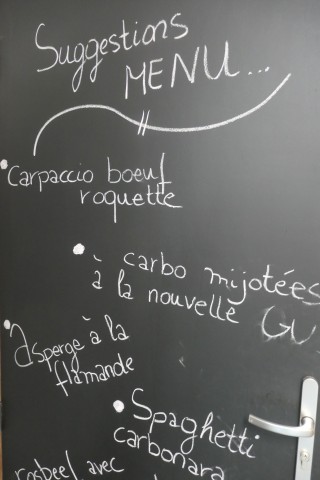 Suggestions
MENU...
carpaccio boeuf
roquette
carbo mijotées
à la nouvelle GU
Asperge à la
flamande
Spaghetti
carbonara
rosbeef avec